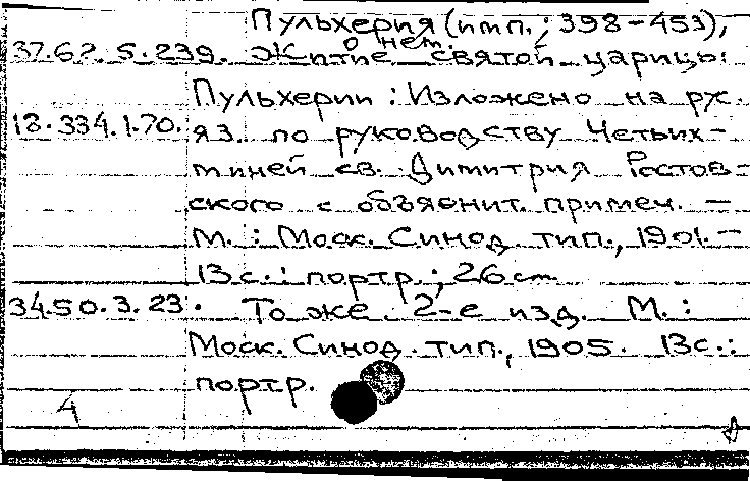 Пульхерия (имп.; 398-453),
о нем.
37.62.5.239. Житие святой царицы
Пульхерии: Изложено на рус.
18.334.1.70. яз. по руководству Четьих-
миней св. Димитрия Ростов-
ского с объяснит. примеч. —
М.: Моск. Синод. тип., 1901. —
13 с.: портр.; 26 см
34.50.3.23. То же. 2-е изд. М.:
Моск. Синод. тип., 1905. 13с.:
портр.
А